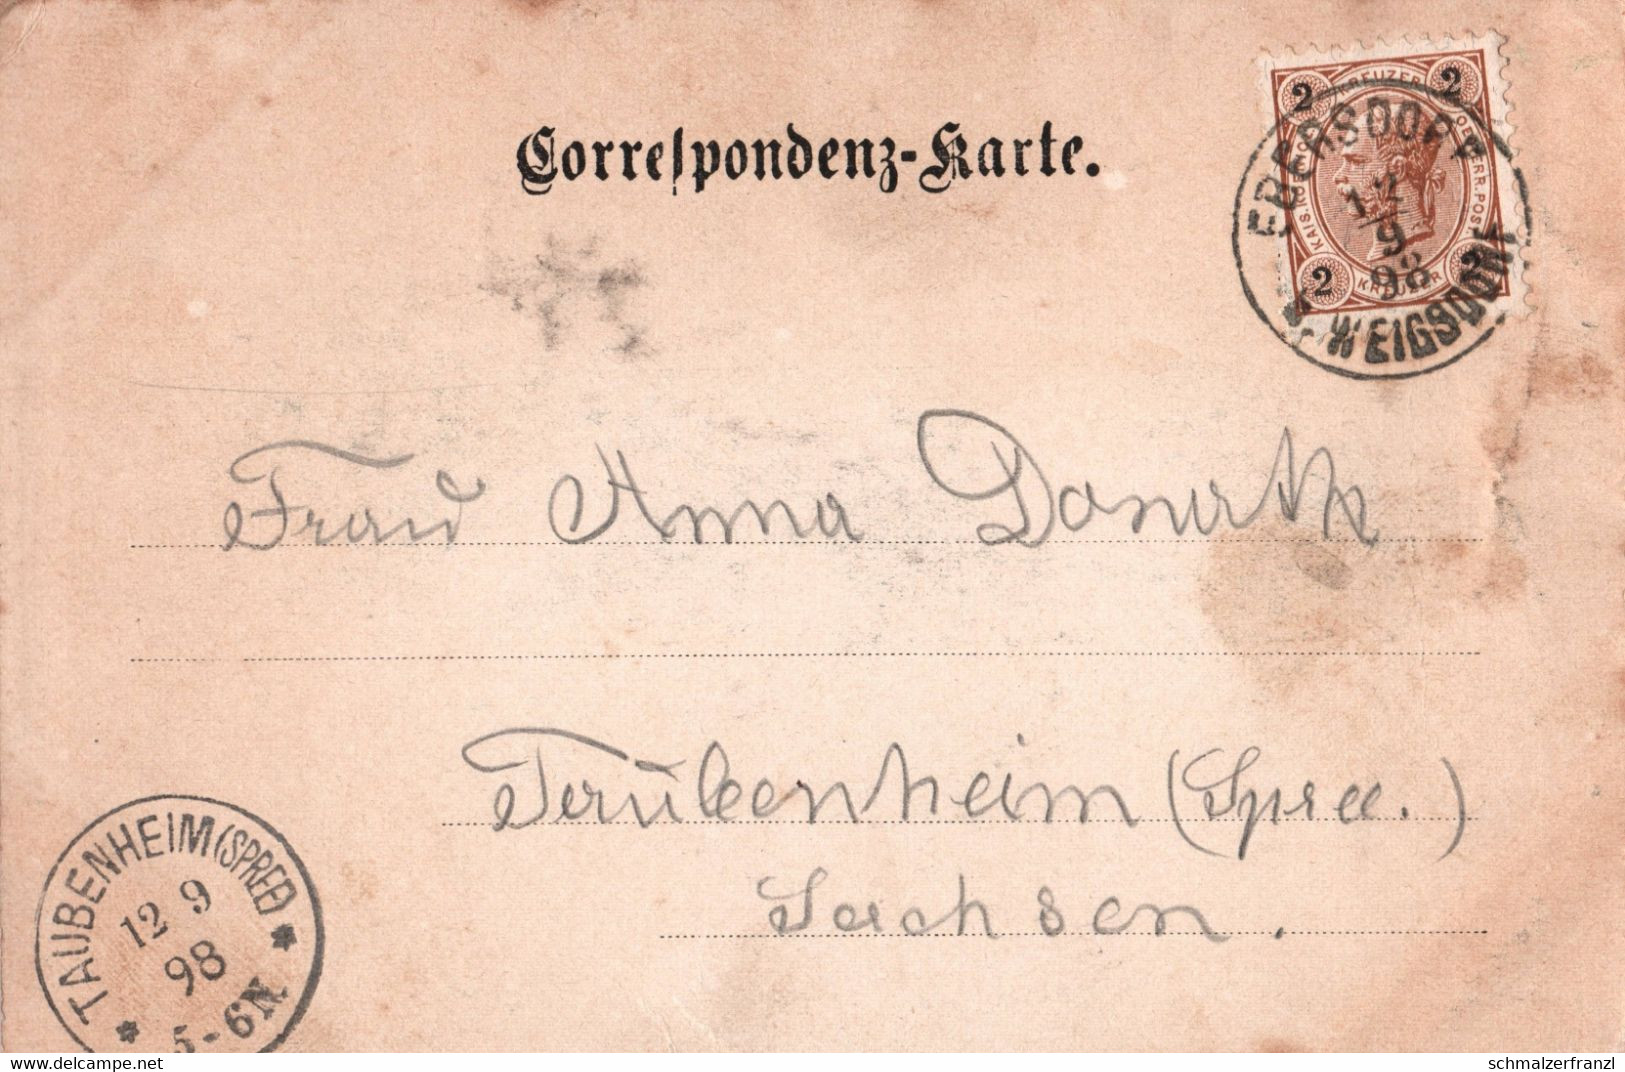 Correspondenz-Karte.
2 KREUZER 2
KAIS. KOENIGL. OESTERR. POST.
2 KREUZER 2
EBERSDORF
12/9
98
B. WEIGSDORF
Frau Anna Donath
Taubenheim (Spree.)
Sachsen.
TAUBENHEIM (SPREE)
12 9
98
5-6N.
www.delcampe.net
schmalzerfranzl